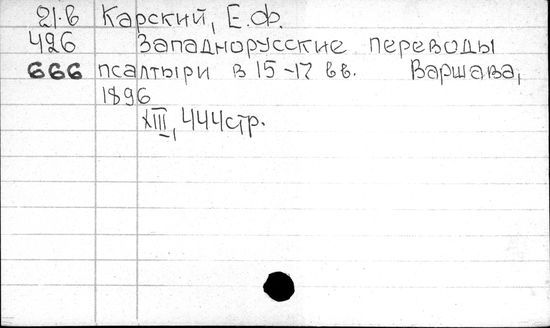 21.в Карский, Е.Ф.
426 Западнорусские переводы
666 псалтыри в 15-17 вв. Варшава,
1896
XIII, 444стр.